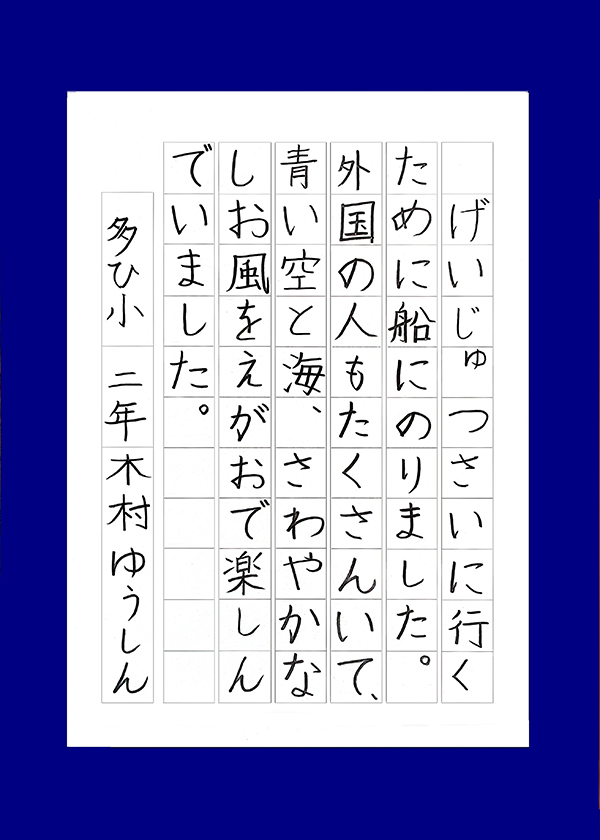 げいじゅつさいに行く
ために船にのりました。
外国の人もたくさんいて、
青い空と海、さわやかな
しお風をえがおで楽しん
でいました。
多ひ小 二年 木村ゆうしん